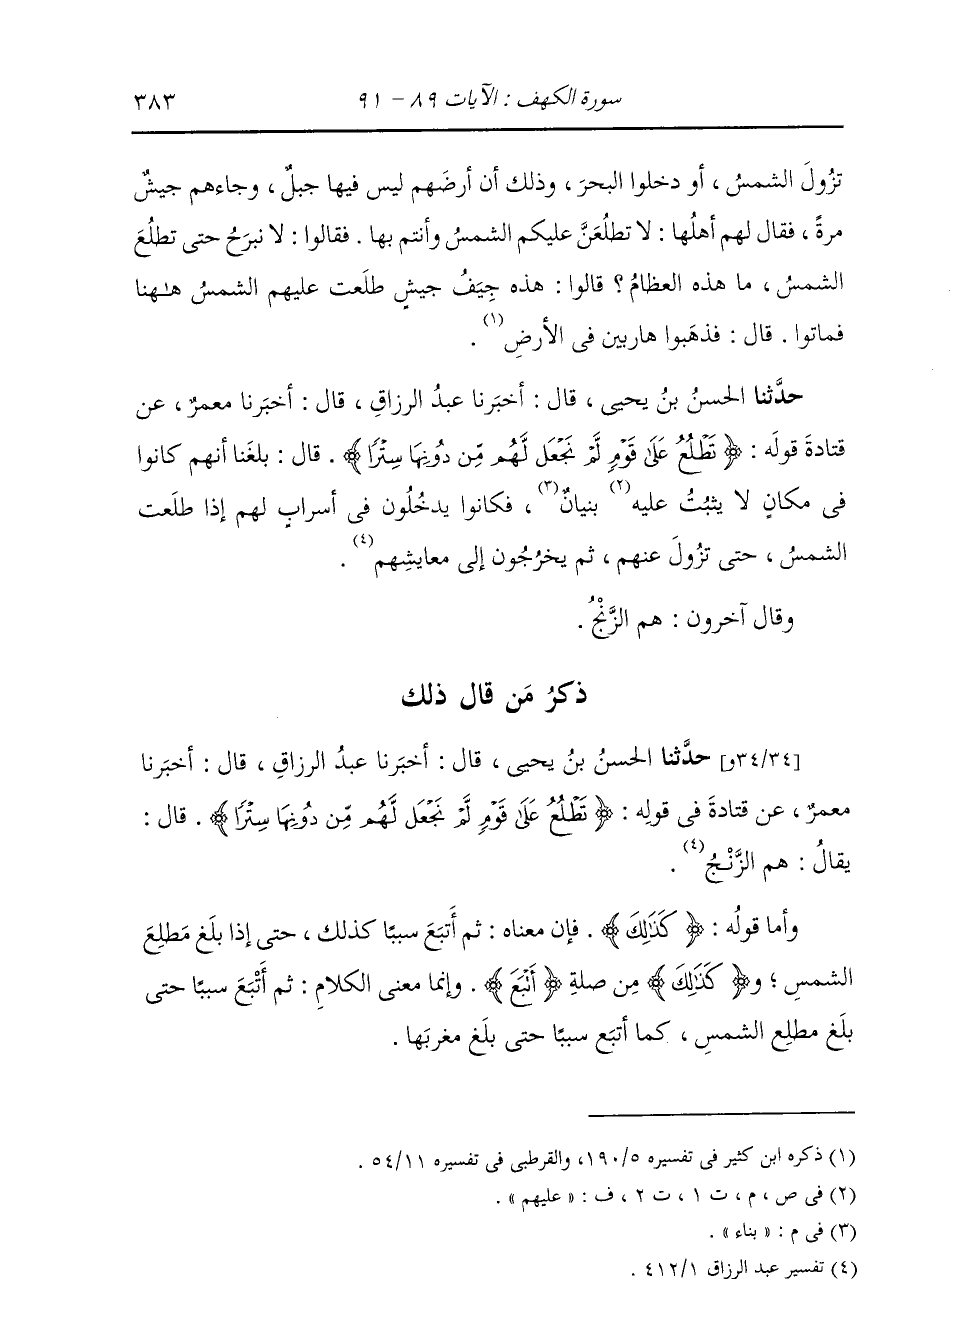 سورة الكهف : الآيات ٨٩ - ٩١
٣٨٣
تزُولَ الشمسُ ، أو دخلوا البحرَ ، وذلك أن أرضَهم ليس فيها جبلٌ ، وجاءهم جيشٌ
مرةً ، فقال لهم أهلُها : لا تطلُعَنَّ عليكم الشمسُ وأنتم بها . فقالوا : لا نبرَحُ حتى تطلُعَ
الشمسُ ، ما هذه العظامُ ؟ قالوا : هذه جِيَفُ جيشٍ طلَعت عليهم الشمسُ هـٰهنا
فماتوا . قال : فذهَبوا هاربين فى الأرضِ(١) .
حدَّثنا الحسنُ بنُ يحيى ، قال : أخبَرنا عبدُ الرزاقِ ، قال : أخبَرنا معمرٌ ، عن
قتادةَ قولَه : ﴿ تَطْلُعُ عَلَىٰ قَوْمٍ لَّمْ نَجْعَل لَّهُم مِّن دُونِهَا سِتْرًا ﴾ . قال : بلغَنا أنهم كانوا
فى مكانٍ لا يثبُتُ عليه(٢) بنيانٌ(٣) ، فكانوا يدخُلُون فى أسرابٍ لهم إذا طلعت
الشمسُ ، حتى تزُولَ عنهم ، ثم يخرُجُون إلى معايشِهم(٤) .
وقال آخرون : هم الزَّنْجُ .
ذكرُ مَن قال ذلك
[٣٤/٣٤و] حدَّثنا الحسنُ بنُ يحيى ، قال : أخبَرنا عبدُ الرزاقِ ، قال : أخبَرنا
معمرٌ ، عن قتادةَ فى قولِه : ﴿ تَطْلُعُ عَلَىٰ قَوْمٍ لَّمْ نَجْعَل لَّهُم مِّن دُونِهَا سِتْرًا ﴾ . قال :
يقالُ : هم الزَّنْجُ(٤) .
وأما قولُه : ﴿ كَذَٰلِكَ ﴾ . فإن معناه : ثم أَتبَعَ سببًا كذلك ، حتى إذا بلَغ مَطلِعَ
الشمسِ ؛ و﴿ كَذَٰلِكَ ﴾ مِن صلةِ ﴿ أَتْبَعَ ﴾ . وإنما معنى الكلامِ : ثم أَتْبَعَ سببًا حتى
بلَغ مطلِع الشمسِ ، كما أتبَع سببًا حتى بلَغ مغربَها .
(١) ذكره ابن كثير فى تفسيره ١٩٠/٥، والقرطبى فى تفسيره ٥٤/١١ .
(٢) فى ص ، م ، ت ١ ، ت ٢ ، ف : « عليهم » .
(٣) فى م : « بناء » .
(٤) تفسير عبد الرزاق ٤١٢/١ .